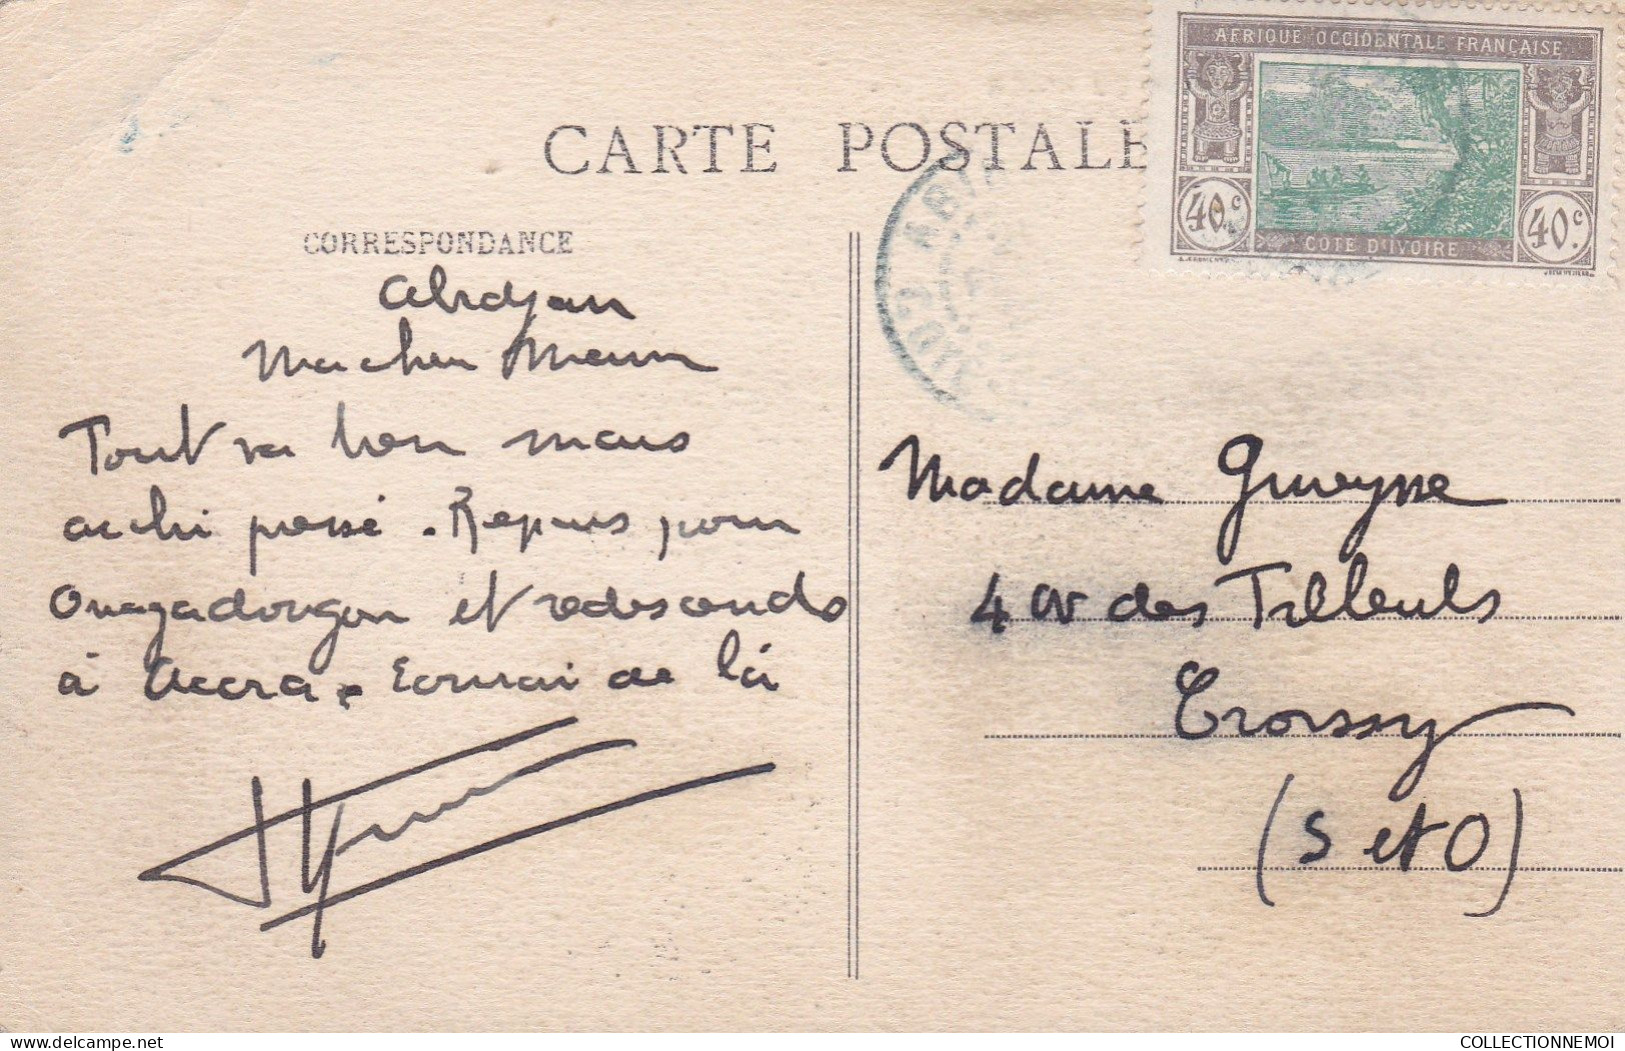 AFRIQUE OCCIDENTALE FRANÇAISE
40c.
40c.
COTE D'IVOIRE
CARTE POSTALE
CORRESPONDANCE
Abidjan
Ma chère Mam
Tout va bien mais
archi pressé. Repars pour
Ouagadougou et redescends
à Accra. Ecrirai de là
Madame Grueysse
4 av des Tilleuls
Croissy
(S et O)
COLLECTIONNEMOI
delcampe.net